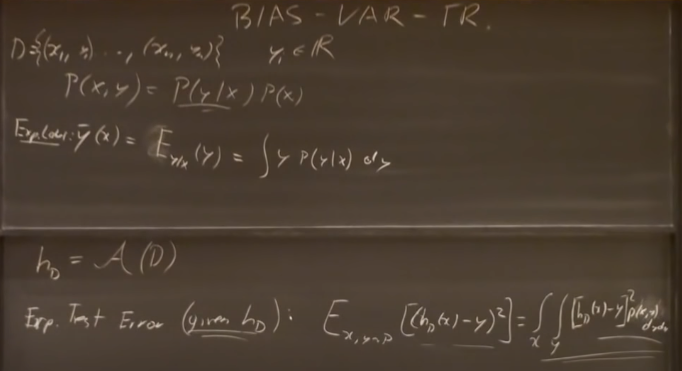 BIAS - VAR - TR.
D={(x₁, y₁) ..., (xₙ, yₙ)}   yᵢ ∈ ℝ
P(x,y) = P(y|x) P(x)
Exp. Label: ȳ(x) = E_{y|x}(y) = ∫ y P(y|x) dy
h_D = A(D)
Exp. Test Error (given h_D): E_{x,y~P} [(h_D(x) - y)²] = ∫_x ∫_y [h_D(x) - y]² P(x,y) dxdy